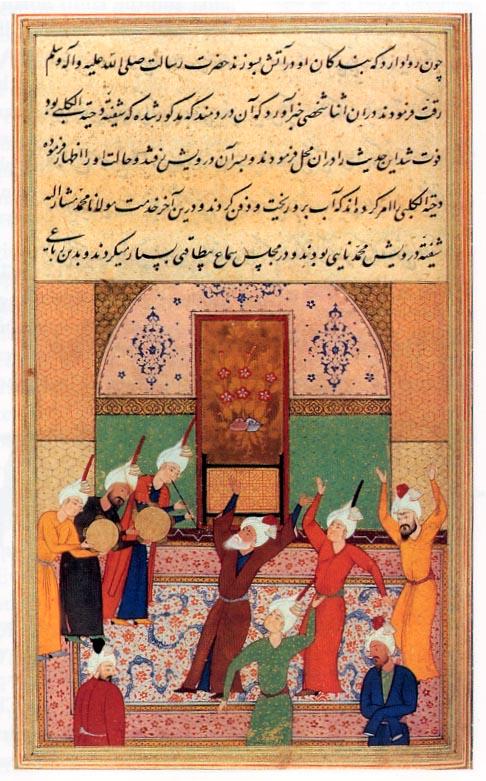 چون روا دارد که بندکان او را آتش بسوزند حضرت رسالت صلی الله علیه وآله وسلم
رقت فرمودند در ان اثنا شخصی خبر آورد که آن دردمند که مذکور شد که شیفته دحیة الکلبی بود
فوت شد این حدیث را در ان محل فرمودند و بسر آن درویش رفتند و حالت او را اظهار فرموده
دحیة الکلبی را امر کردند که آب برو ریخت و دفن کردند و درین آخر خدمت مولانا محمد مشار الیه
شیفته درویش محمد نایی بودند و در مجلس سماع بیطاقتی بسیار میکردند و بدین رباعی